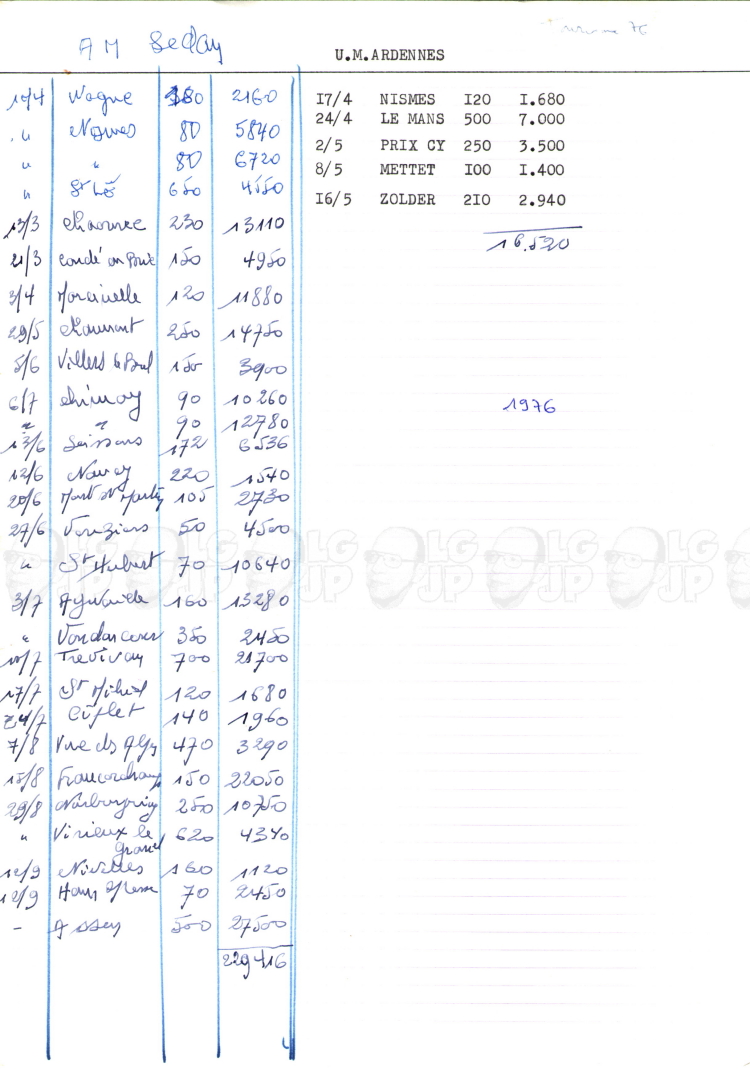 AM Sedan
U.M.ARDENNES
I7/4 NISMES I20 I.680
24/4 LE MANS 500 7.000
2/5 PRIX CY 250 3.500
8/5 METTET I00 I.400
I6/5 ZOLDER 2I0 2.940
16.520
1976
Wagne 180 2160
" Nismes 80 5840
" " 80 6720
" St Lô 650 4550
13/3 Chaource 230 13110
21/3 Condé en Brie 150 4950
3/4 Marcinelle 120 11880
29/5 Chaumont 250 14750
5/6 Villers le 150 3900
6/7 Chimay 90 10260
" " 90 12780
13/6 Soissons 172 6536
12/6 Nancy 220 1540
20/6 Mont St Martin 105 2730
27/6 Vouziers 50 4500
" St Hubert 70 10640
3/7 Aywaille 160 13280
" 350 2450
700 21700
17/7 St Mihiel 120 1680
24/7 140 1960
7/8 Vue des Alpes 470 3290
15/8 Francorchamps 150 22050
29/8 Nürburgring 250 10750
" Virieux le Grand 620 4340
12/9 Nivelles 160 1120
12/9 70 2450
- Assen 500 27500
229416
LG JP
LG JP
LG JP
LG JP
LG JP
LG JP